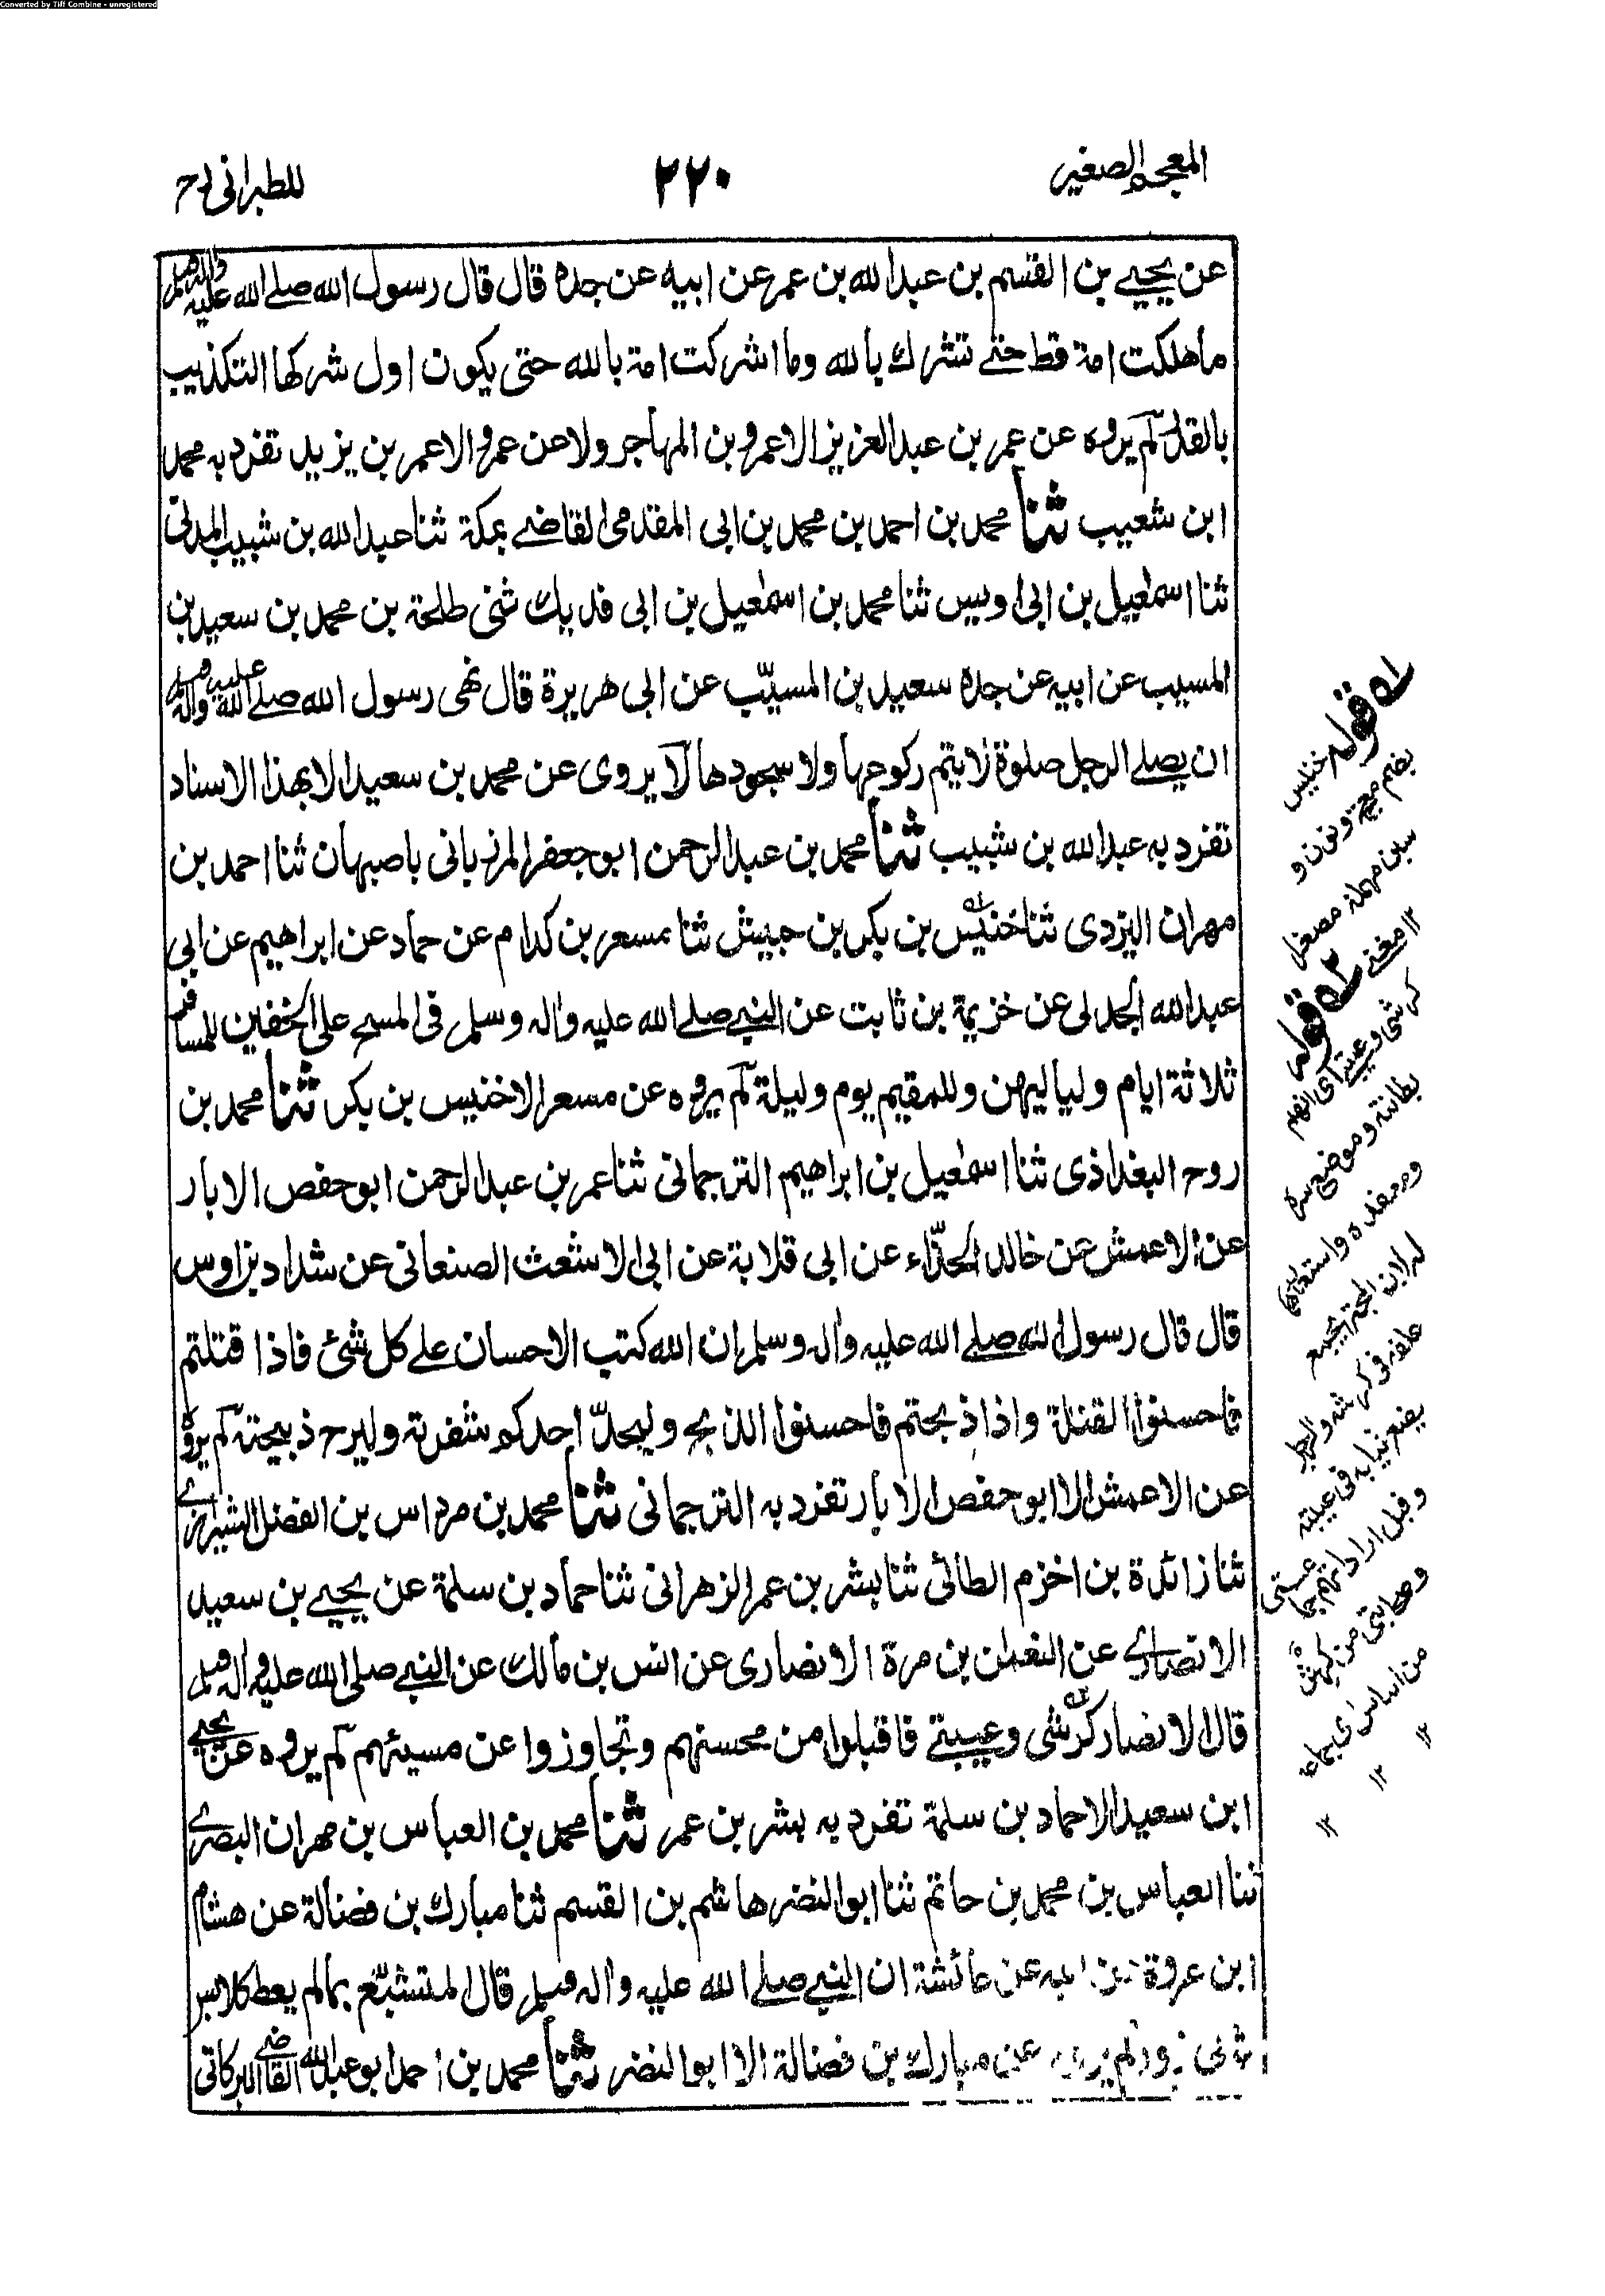 Converted by Tiff Combine - unregistered
المعجم الصغير
٢٢٠
للطبرانى رح
عن يحيى بن القسم بن عبد الله بن عمر عن ابيه عن جده قال قال رسول الله صلى الله عليه واله وسلم
ما هلكت امة قط حتى تشرك بالله وما اشركت امة بالله حتى يكون اول شركها التكذيب
بالقدر لم يروه عن عمر بن عبد العزيز الا عمرو بن المهاجر ولا عن عمرو الا عمر بن يزيد تفرد به محمد
ابن شعيب ثنا محمد بن احمد بن محمد بن ابى المقدمى القاضى بمكة ثنا عبد الله بن شبيب المدنى
ثنا اسمعيل بن ابى اويس ثنا محمد بن اسمعيل بن ابى فديك ثنى طلحة بن محمد بن سعيد بن
المسيب عن ابيه عن جده سعيد بن المسيّب عن ابى هريرة قال نهى رسول الله صلى الله عليه واله وسلم
ان يصلى الرجل صلوة لا يتم ركوعها ولا سجودها لا يروى عن محمد بن سعيد الا بهذا الاسناد
تفرد به عبد الله بن شبيب ثنا محمد بن عبد الرحمن ابو جعفر المرزبانى باصبهان ثنا احمد بن
مهران اليزدى ثنا خنيس بن بكر بن حبيش ثنا مسعر بن كدام عن حماد عن ابراهيم عن ابى
عبد الله الجدلى عن خزيمة بن ثابت عن النبى صلى الله عليه واله وسلم فى المسح على الخفين للمسافر
ثلاثة ايام ولياليهن وللمقيم يوم وليلة لم يروه عن مسعر الا خنيس بن بكر ثنا محمد بن
روح البغداذى ثنا اسمعيل بن ابراهيم الترجمانى ثنا عمر بن عبد الرحمن ابو حفص الابار
عن الاعمش عن خالد الحذّاء عن ابى قلابة عن ابى الاشعث الصنعانى عن شداد بن اوس
قال قال رسول الله صلى الله عليه واله وسلم ان الله كتب الاحسان على كل شئ فاذا قتلتم
فاحسنوا القتلة واذا ذبحتم فاحسنوا الذبح وليحدّ احدكم شفرته وليرح ذبيحته لم يروه
عن الاعمش الا ابو حفص الابار تفرد به الترجمانى ثنا محمد بن مرداس بن الفضل الشيرازى
ثنا زائدة بن اخزم الطائى ثنا بشر بن عمر الزهرانى ثنا حماد بن سلمة عن يحيى بن سعيد
الانصارى عن النعمان بن مرة الانصارى عن انس بن مالك عن النبى صلى الله عليه واله وسلم
قال الانصار كرشى وعيبتى فاقبلوا من محسنهم وتجاوزوا عن مسيئهم لم يروه عن يحيى
ابن سعيد الا حماد بن سلمة تفرد به بشر بن عمر ثنا محمد بن العباس بن مهران البصرى
ثنا العباس بن محمد بن حاتم ثنا ابو النضر هاشم بن القسم ثنا مبارك بن فضالة عن هشام
ابن عروة عن ابيه عن عائشة ان النبى صلى الله عليه واله وسلم قال المتشبّع بما لم يعط كلابس
ثوبى زور لم يروه عن مبارك بن فضالة الا ابو النضر ثنا محمد بن احمد ابو عبد الله القاضى البركانى
له قوله خنيس
بضم معجمة ونون و
سين مهملة مصغرا
١٢ مغنى ٢ قوله
كرشى وعيبتى اى انهم
بطانته وموضع سره